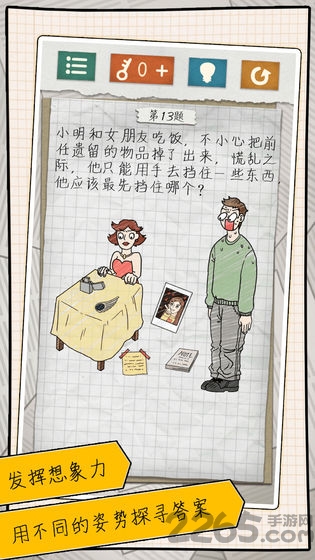 0+
第13题
小明和女朋友吃饭，不小心把前
任遗留的物品掉了出来，慌乱之
际，他只能用手去挡住一些东西
他应该最先挡住哪个？
NOTE
发挥想象力
用不同的姿势探寻答案
2265.com
手游网